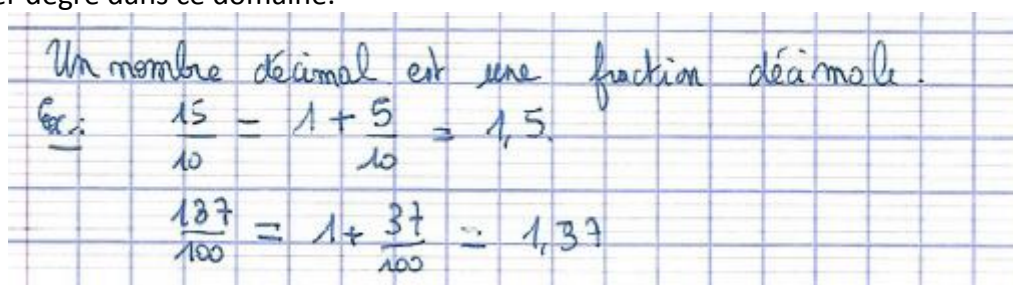 er degré dans ce domaine.
Un nombre décimal est une fraction décimale.
Ex : 15/10 = 1 + 5/10 = 1,5.
137/100 = 1 + 37/100 = 1,37